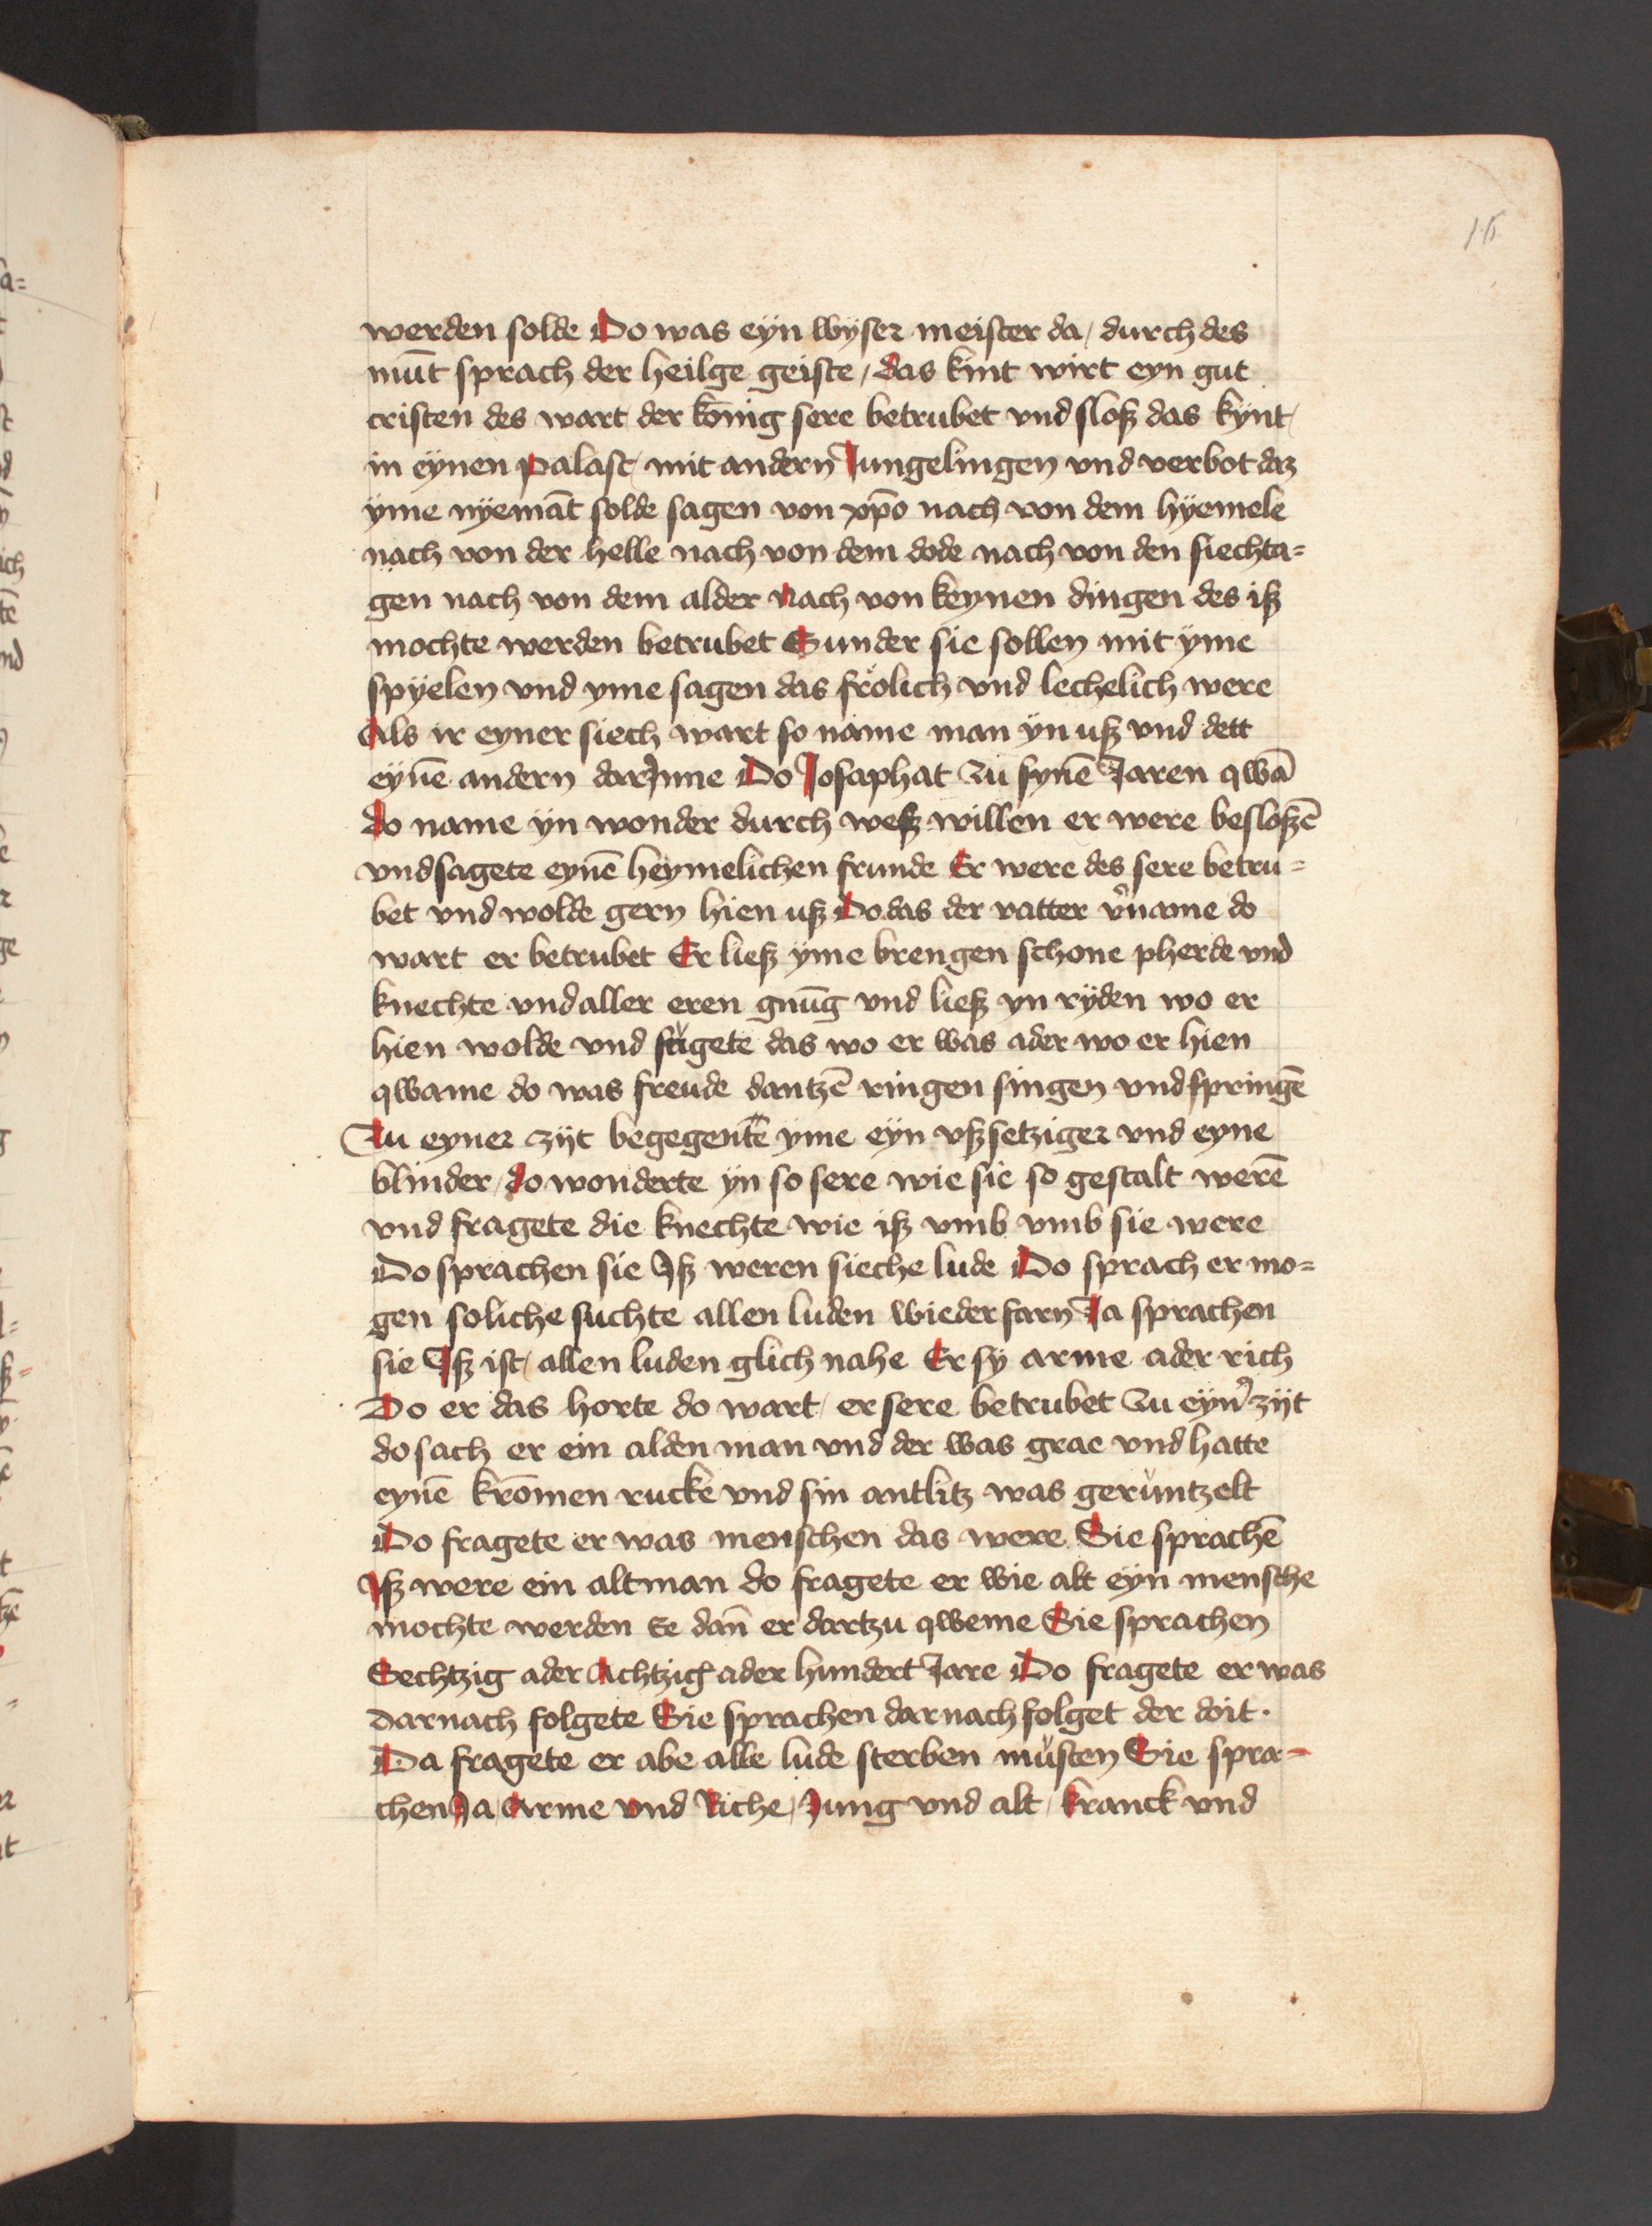 15
werden solde Do was eÿn wÿser meister da / durch des
mūt sprach der heilge geiste / das kint wirt eyn gut
cristen des wart der kōnig sere betrubet vnd sloß das kÿnt
in eÿnen palast mit andern Jungelingen vnd verbot daz
ÿme nÿemāt solde sagen von xp̄o nach von dem hÿemele
nach von der helle nach von dem dode nach von den siechta=
gen nach von dem alder nach von keynen dingen des iß
mochte werden betrubet Sunder sie sollen mit ÿme
spÿelen vnd yme sagen das frölich vnd lechelich were
Als ir eyner siech wart so name man ÿn uß vnd dett
eÿnē andern darJnne Do Josaphat zu sÿnē Jaren qwā
do name ÿn wonder durch weß willen er were besloßē
vnd sagete eynē heymelichen frunde Er were des sere betru=
bet vnd wolde gern hien uß Do das der vatter v̓name do
wart er betrubet Er ließ ÿme brengen schone pherde vnd
knechte vnd aller eren gnūg vnd ließ yn rÿden wo er
hien wolde vnd fugete das wo er was ader wo er hien
qwame do was freude dantzē ringen singen vnd springē
Zu eyner zÿt begegentē ÿme eÿn vßsetziger vnd eyne
blinder / do wonderte ÿn so sere wie sie so gestalt werē
vnd fragete die knechte wie iß vmb vmb sie were
Do sprachen sie Jß weren sieche lude Do sprach er mo=
gen soliche suchte allen luden wiederfarn Ja sprachen
sie Jß ist allen luden glich nahe Er sÿ arme ader rich
Do er das horte do wart er sere betrubet zu eÿn̓ zÿt
do sach er ein alden man vnd der was grae vnd hatte
eynē krōmen rucke vnd sin antlitz was geruntzelt
Do fragete er was menschen das were Sie sprachē
Jß were ein altman do fragete er wie alt eÿn mensche
mochte werden Ee dan̄ er dartzu qweme Sie sprachen
Sechtzig ader Achtzig ader hundert Jare Do fragete er was
darnach folgete Sie sprachen darnach folget der doit ·
Da fragete er abe alle lude sterben musten Sie spra=
chen Ja / Arme vnd Riche / Jung vnd alt / kranck vnd